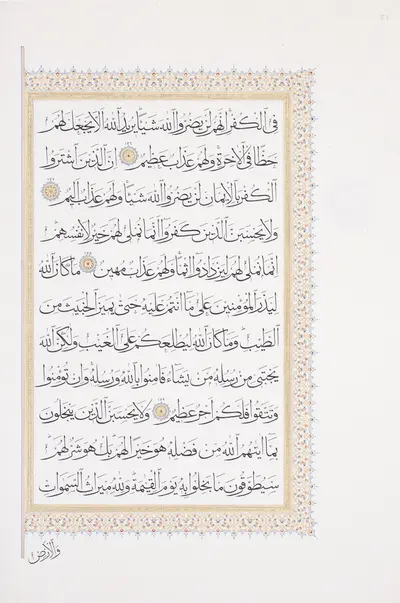 فِى ٱلْكُفْرِ إِنَّهُمْ لَن يَضُرُّوا۟ ٱللَّهَ شَيْـًٔا يُرِيدُ ٱللَّهُ أَلَّا يَجْعَلَ لَهُمْ
حَظًّا فِى ٱلْـَٔاخِرَةِ وَلَهُمْ عَذَابٌ عَظِيمٌ إِنَّ ٱلَّذِينَ ٱشْتَرَوُا۟
ٱلْكُفْرَ بِٱلْإِيمَـٰنِ لَن يَضُرُّوا۟ ٱللَّهَ شَيْـًٔا وَلَهُمْ عَذَابٌ أَلِيمٌ
وَلَا يَحْسَبَنَّ ٱلَّذِينَ كَفَرُوٓا۟ أَنَّمَا نُمْلِى لَهُمْ خَيْرٌ لِّأَنفُسِهِمْ
إِنَّمَا نُمْلِى لَهُمْ لِيَزْدَادُوٓا۟ إِثْمًا وَلَهُمْ عَذَابٌ مُّهِينٌ مَّا كَانَ ٱللَّهُ
لِيَذَرَ ٱلْمُؤْمِنِينَ عَلَىٰ مَآ أَنتُمْ عَلَيْهِ حَتَّىٰ يَمِيزَ ٱلْخَبِيثَ مِنَ
ٱلطَّيِّبِ وَمَا كَانَ ٱللَّهُ لِيُطْلِعَكُمْ عَلَى ٱلْغَيْبِ وَلَـٰكِنَّ ٱللَّهَ
يَجْتَبِى مِن رُّسُلِهِ مَن يَشَآءُ فَـَٔامِنُوا۟ بِٱللَّهِ وَرُسُلِهِ وَإِن تُؤْمِنُوا۟
وَتَتَّقُوا۟ فَلَكُمْ أَجْرٌ عَظِيمٌ وَلَا يَحْسَبَنَّ ٱلَّذِينَ يَبْخَلُونَ
بِمَآ ءَاتَىٰهُمُ ٱللَّهُ مِن فَضْلِهِ هُوَ خَيْرًا لَّهُم بَلْ هُوَ شَرٌّ لَّهُمْ
سَيُطَوَّقُونَ مَا بَخِلُوا۟ بِهِ يَوْمَ ٱلْقِيَـٰمَةِ وَلِلَّهِ مِيرَاثُ ٱلسَّمَـٰوَاتِ
وَٱلْأَرْضِ